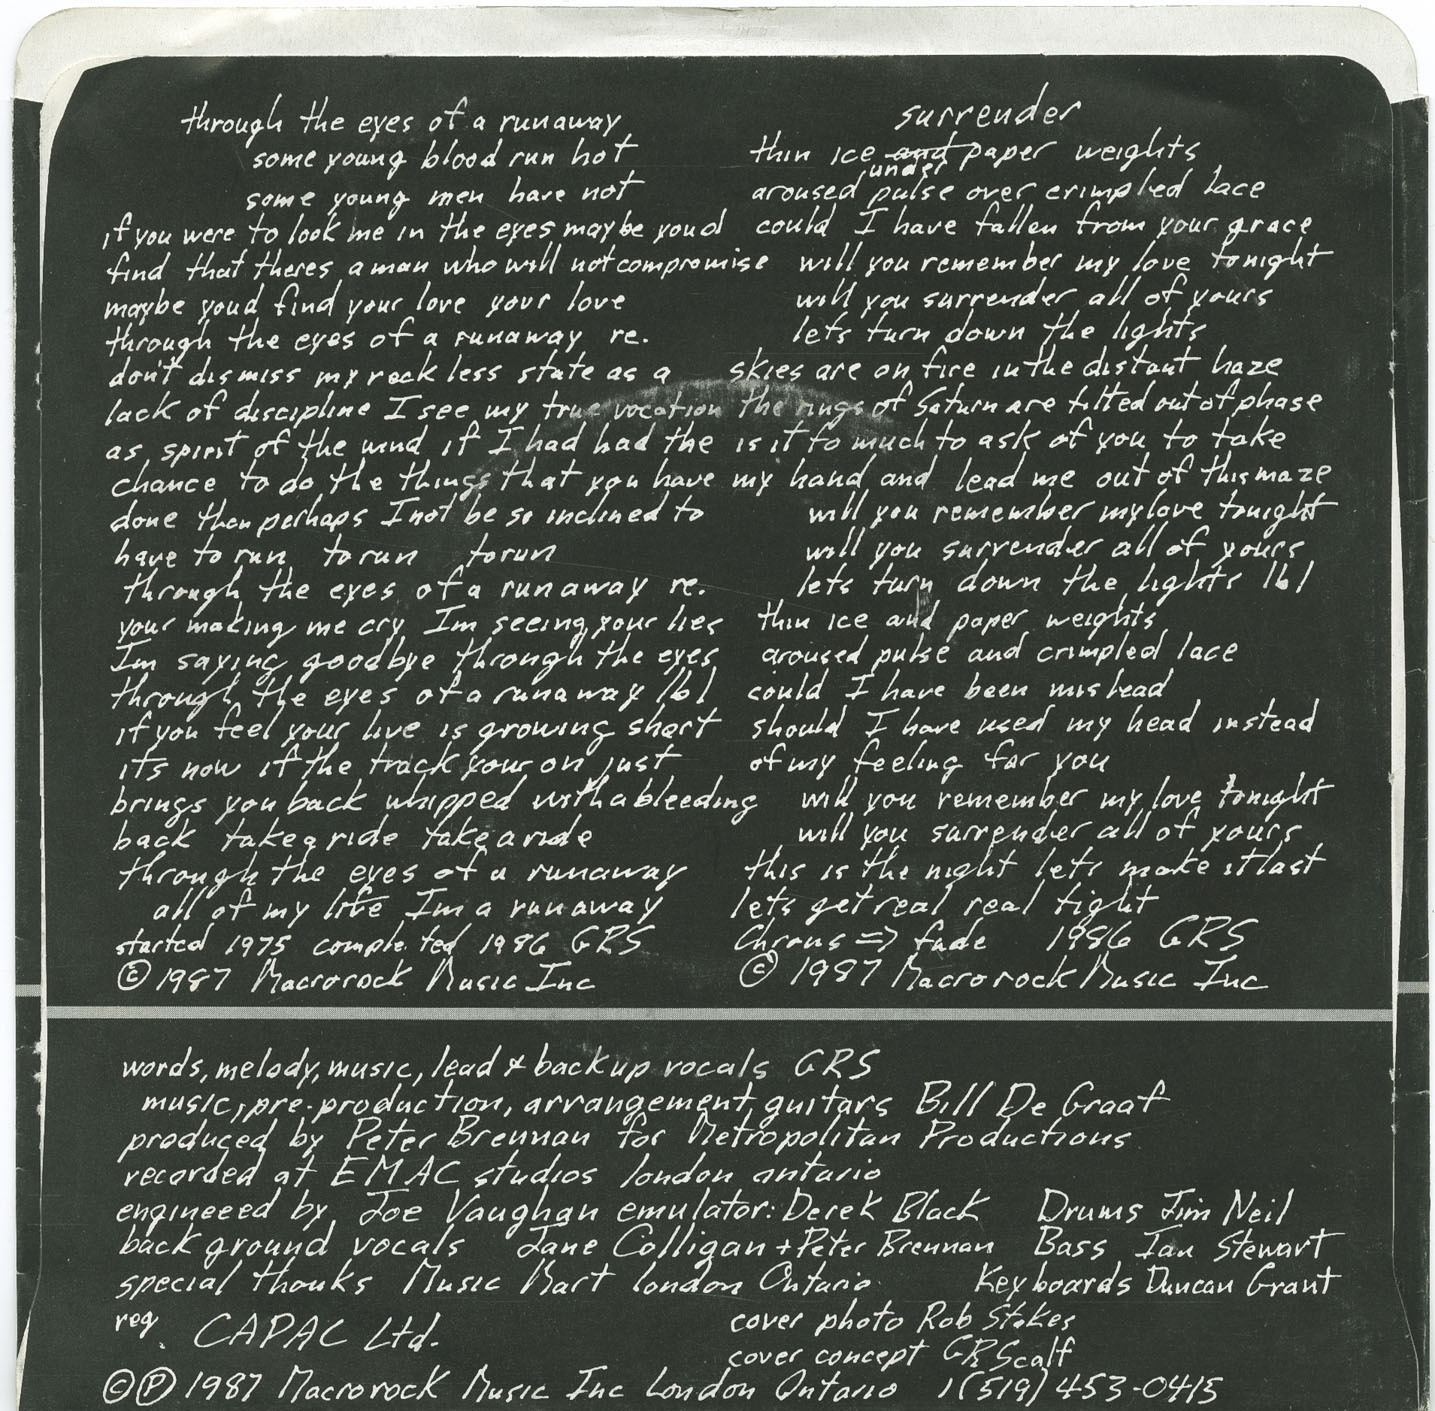 through the eyes of a runaway
some young blood run hot
some young men have not
if you were to look me in the eyes maybe youd
find that theres a man who will not compromise
maybe youd find your love your love
through the eyes of a runaway re.
don't dismiss my reckless state as a
lack of discipline I see my true vocation
as spirit of the wind if I had had the
chance to do the things that you have
done then perhaps I not be so inclined to
have to run to run to run
through the eyes of a runaway re.
your making me cry Im seeing your lies
Im saying goodbye through the eyes
through the eyes of a runaway 161
if you feel your live is growing short
its now if the track your on just
brings you back whipped with a bleeding
back take a ride take a ride
through the eyes of a runaway
all of my life Im a runaway
started 1975 completed 1986 GRS
© 1987 Macrorock Music Inc
surrender
thin ice and paper weights
under
aroused pulse over crimpled lace
could I have fallen from your grace
will you remember my love tonight
will you surrender all of yours
lets turn down the lights
skies are on fire in the distant haze
the rings of Saturn are tilted out of phase
is it to much to ask of you to take
my hand and lead me out of this maze
will you remember my love tonight
will you surrender all of yours
lets turn down the lights 161
thin ice and paper weights
aroused pulse and crimpled lace
could I have been mislead
should I have used my head instead
of my feeling for you
will you remember my love tonight
will you surrender all of yours
this is the night lets make it last
lets get real real tight
Chrous => fade 1986 GRS
© 1987 Macrorock Music Inc
words, melody, music, lead & backup vocals GRS
music, pre-production, arrangement, guitars Bill De Graaf
produced by Peter Brennan for Metropolitan Productions
recorded at EMAC studios london ontario
engineeed by Joe Vaughan emulator: Derek Black Drums Jim Neil
back ground vocals Jane Colligan + Peter Brennan Bass Ian Stewart
special thanks Music Mart london Ontario Keyboards Duncan Grant
reg. CAPAC Ltd.
cover photo Rob Stokes
cover concept GRScalf
© ℗ 1987 Macrorock Music Inc London Ontario 1(519) 453-0415